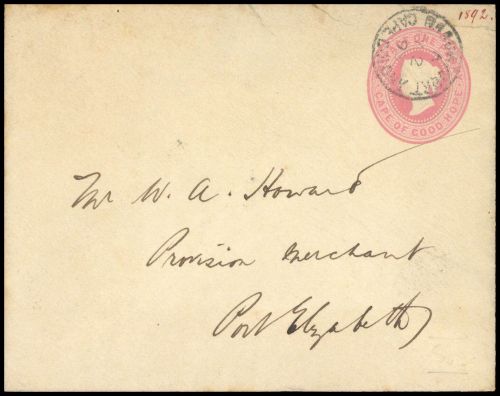 1892.
ONE
CAPE OF GOOD HOPE
Mr W. A. Howard
Provision Merchant
Port Elizabeth